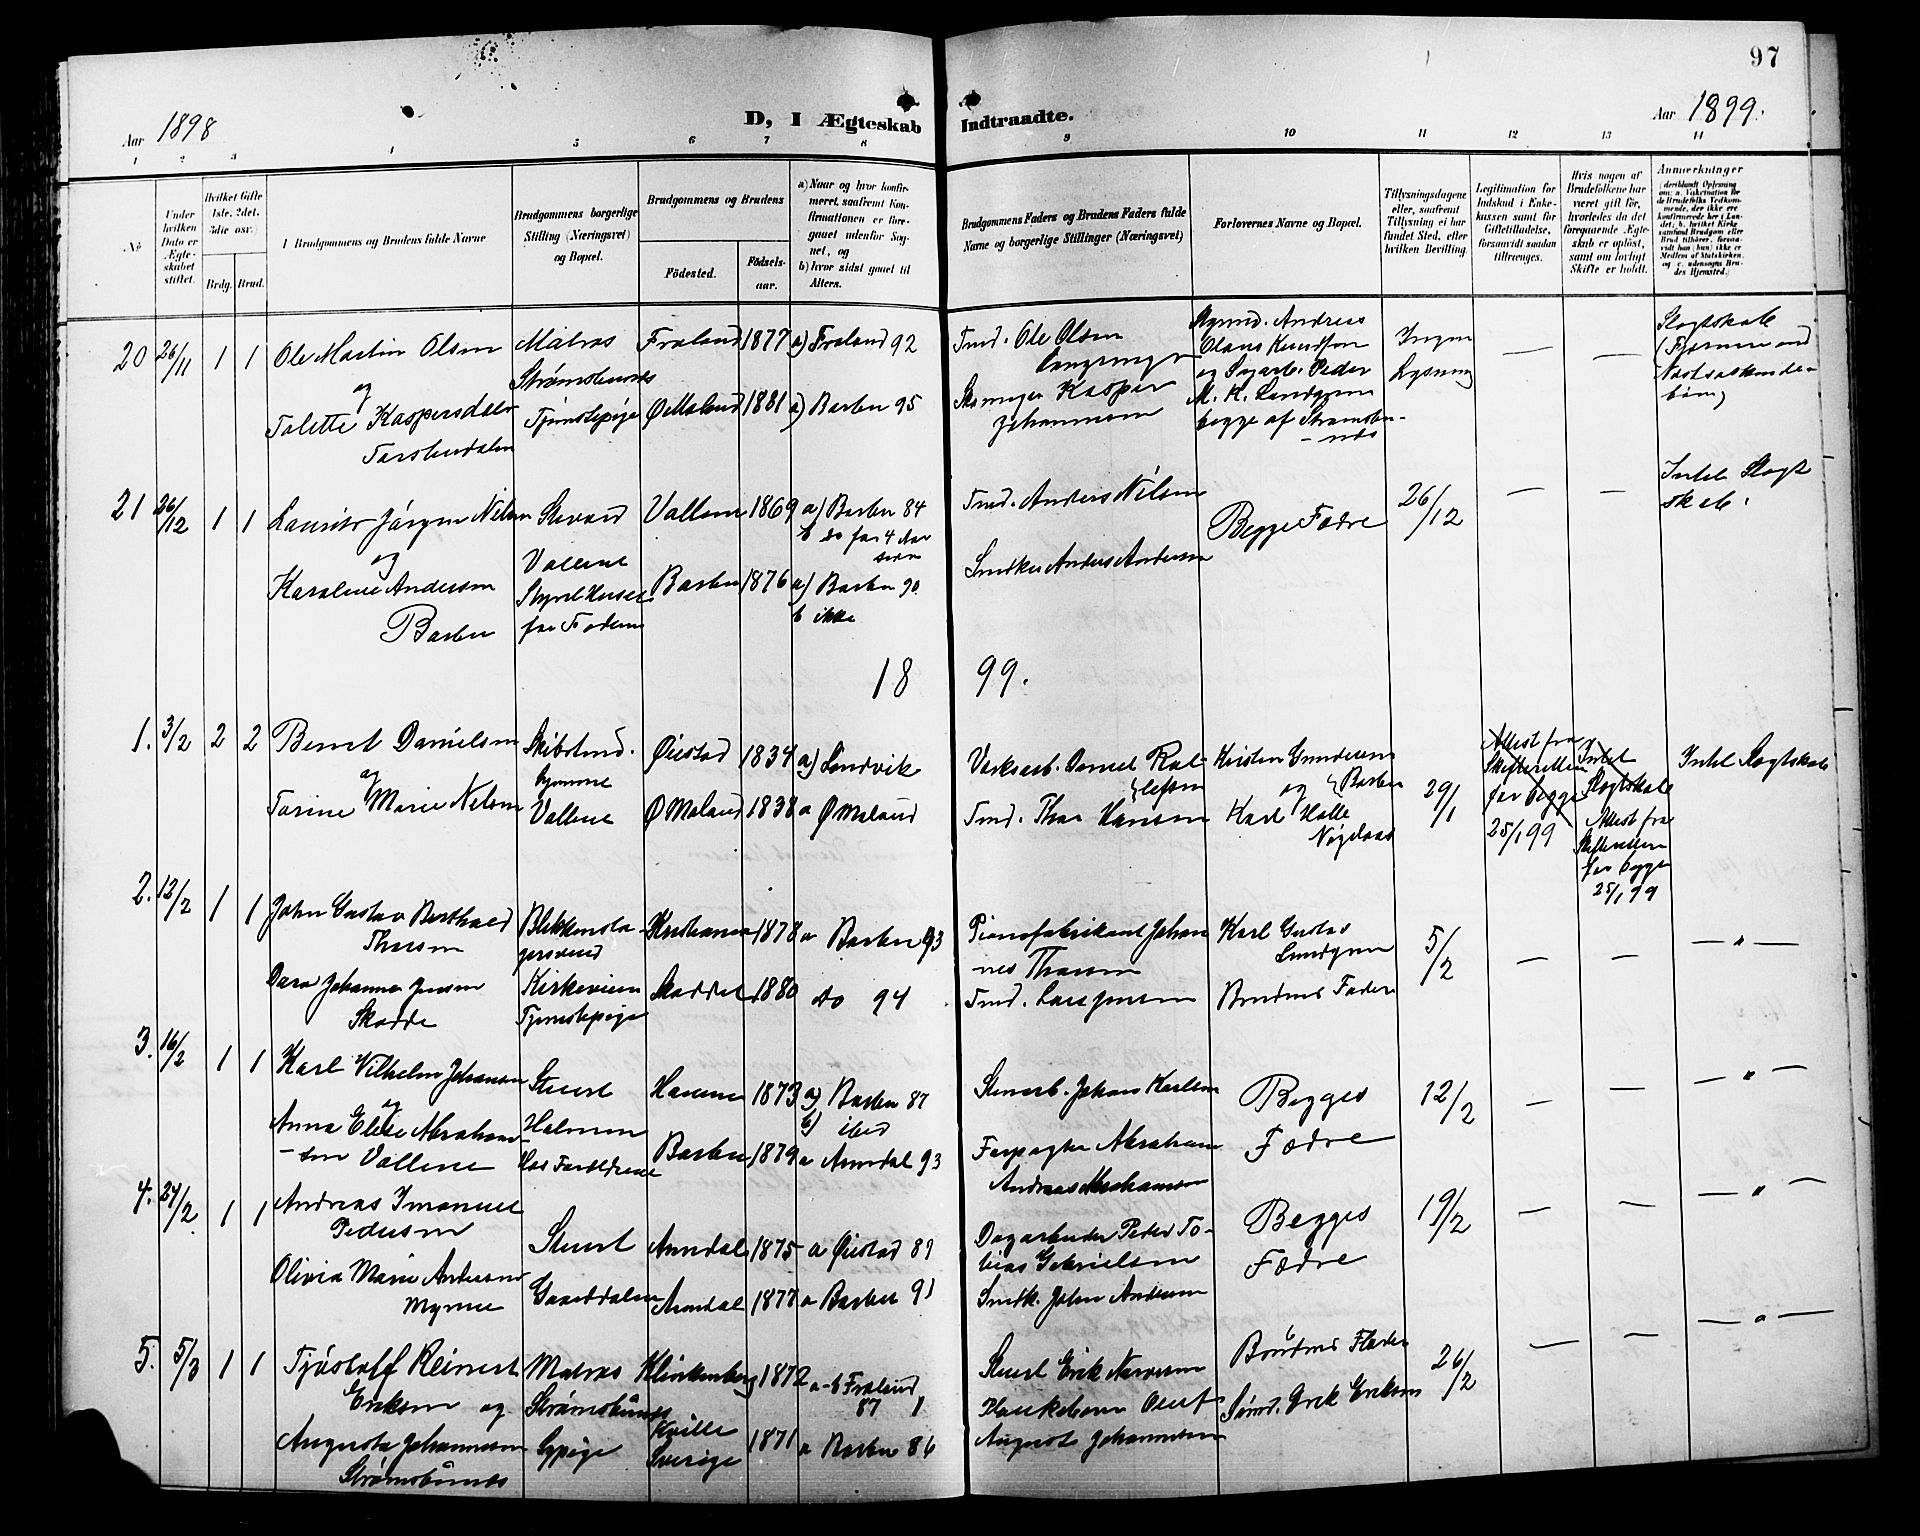 97
Aar 1898
D, I Ægteskab Indtraadte.
Aar 1899.
1 2 3 4 5 6 7 8 9 10 11 12 13 14
No
Under hvilken Dato er Ægteskabet stiftet.
Hvilket Gifte 1ste, 2det, 3die osv.)
Brdg. Brud.
Brudgommens og Brudens fulde Navne
Brudgommens borgerlige Stilling (Næringsvei) og Bopæl.
Brudgommens og Brudens
Födested.
Födselsaar.
a) Naar og hvor konfirmeret, saafremt Konfirmationen er foregaaet udenfor Sognet, og
b) hvor sidst gaaet til Alters.
Brudgommens Faders og Brudens Faders fulde Navne og borgerlige Stillinger (Næringsvei)
Forlovernes Navne og Bopæl.
Tillysningsdagene eller, saafremt Tillysning ei har fundet Sted, efter hvilken Bevilling.
Legitimation for Indskud i Enkekassen samt for Giftetilladelse, forsaavidt saadan tiltrænges.
Hvis nogen af Brudefolkene har været gift för, hvorledes da det foregaaende Ægteskab er oplöst, samt om lovligt Skifte er holdt.
Anmærkninger
20 26/11 1 1 Ole Martin Olsen
og
Tolette Kaspersdatter
Matros
Strømsbunæs
Tjenstepige
Froland 1877 a) Froland 92
ØMoland 1881 a) Barbu 95
Tmd. Ole Olsen
Kasper
Johannesen
Andreas
Olaus Knudsen
og Dagarb. Peder
M. K. Lundgren
begge af Strømsbu-
-næs
Ingen
Lysning
—
—
Slegtskab
21 26/12 1 1 Laurits Jörgen Nilsen
og
Karoline Andersen
Barbu
Stuard
Vallene
for Faderen
Vallene 1869 a) Barbu 84
b do for 4 Aar
siden
Barbu 1876 a) Barbu 90
b ikke
Tmd. Anders Nilsen
Snedker Anders Andersen
Begge Fædre
26/12
—
—
Intet Slegt
skab.
18 99.
1. 3/2 2 2 Bernt Danielsen
og
Tarine Marie Nilsen
Skibstmd.
Vallene
Øiestad 1834 a) Landvik
ØMoland 1838 a ØMoland
Verksarb. Daniel
Tmd. Thor Hansen
Kristen Gundersen
og Barbu
Karl Halle
29/1
Attest fra
Skifteretten
for begge
25/1 99
Intet
Slegtskab
Attest fra
Skifteretten
for begge
25/1 99
Intet Slegtskab
2. 12/2 1 1 John Gustav Berthold
Thorsen
Dora Johanne Jensen
Skodde
Kirkeveien
Tjenstepige
Kristiania 1878 a Barbu 93
Skoddel 1880 do 94
Pianofabrikant Johan
nes Thorsen
Tmd. Lars Jensen
Karl Gustav
Lundgren
Brudens Fader
5/2
—
—
— " —
3. 16/2 1 1 Karl Vilhelm Johansen
og
Anna Elise Abraham
-sen Vallene
Stuert
Holmen
Hos Forældrene
1873 a) Barbu 87
b) ibid
Barbu 1879 a Arendal 93
Stenarb. Johans Karlsen
Forpagter Abraham
Andreas Abrahamsen
Begges
Fædre
12/2
—
—
— " —
4. 24/2 1 1 Andreas Imanuel
Pedersen
Olivia Marie Andersen
Myrene
Stuert
Arendal 1875 a Øiestad 89
Arendal 1877 a Barbu 91
Dagarbeider Peder To-
bias Gabrielsen
Snedk. John Andersen
Begges
Fædre
19/2
—
—
— " —
5. 5/3 1 1 Tjöstolff Reinert
Eriksen og
Augusta Johannesen
Strømsbunæs
Matros
Strømsbunæs
Sypige
Klinkenberg 1872 a-b Froland
87
Kville
Sverige 1871 a Barbu 86
Stuert Erik
Oluf
August Johannesen
Brudens Fader
Erik Eriksen
26/2
—
—
— " —